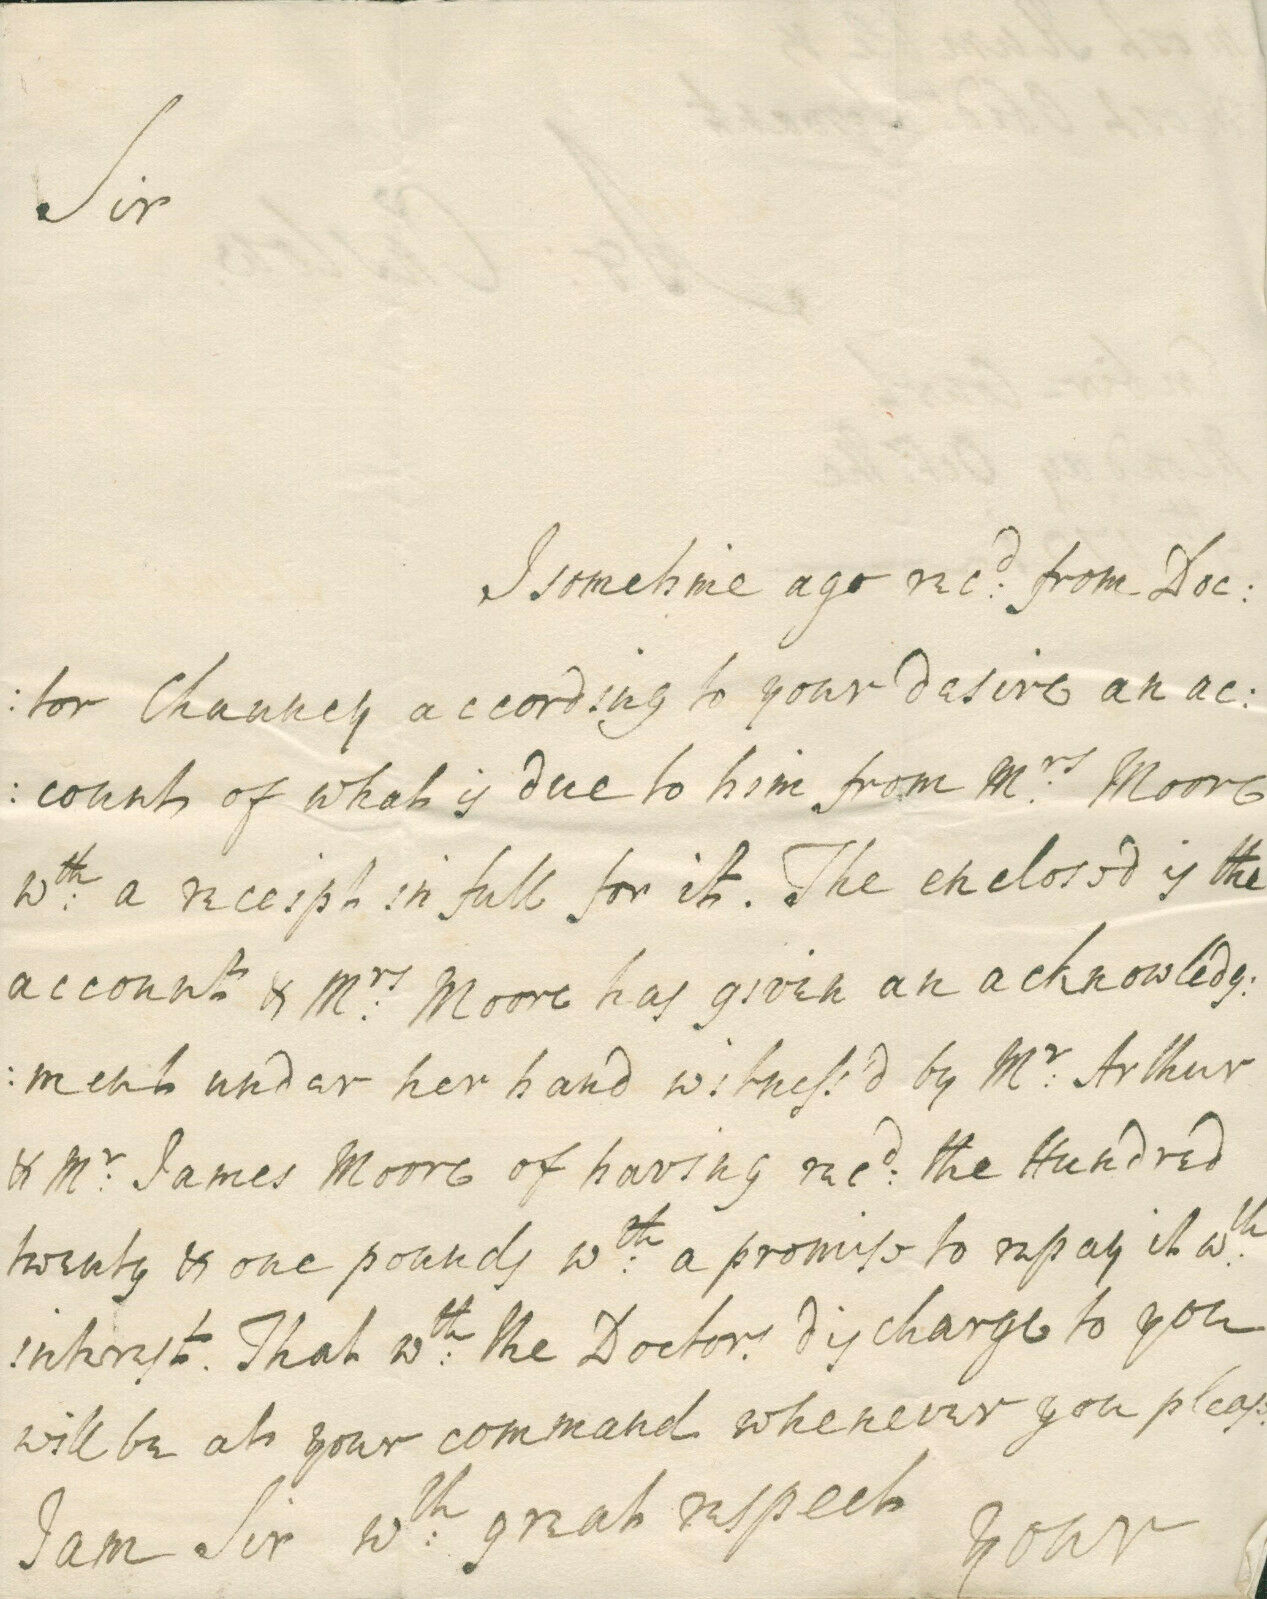 Sir
I sometime ago rec:d from Doc:
:tor Chauncy according to your desire an ac:
:count of what is due to him from Mrs: Moore
wth: a receipt in full for it. The enclos'd is the
account & Mrs: Moore has given an acknowledg:
:ment under her hand witness'd by Mr: Arthur
& Mr: James Moore of having rec:d the Hundred
twenty & one pounds wth: a promise to repay it wth:
interest. That wth: the Doctors discharge to you
will be at your command whenever you pleas:
I am Sir wth: great respect your